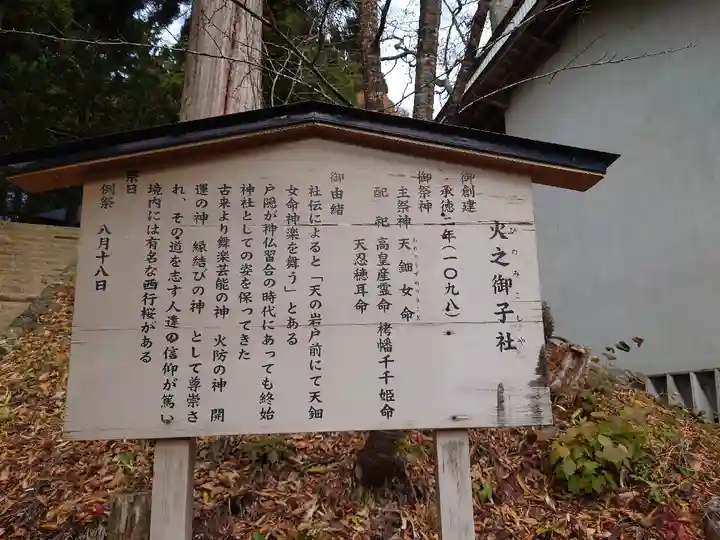 火之御子社
ひのみこしゃ
御創建
承徳二年(一〇九八)
御祭神
主祭神 天鈿女命
あめのうずめのみこと
配祀 高皇産霊命 栲幡千千姫命
天忍穂耳命
御由緒
社伝によると「天の岩戸前にて天鈿
女命神楽を舞う」とある
戸隠が神仏習合の時代にあっても終始
神社としての姿を保ってきた
古来より舞楽芸能の神 火防の神 開
運の神 縁結びの神 として尊崇さ
れ、その道を志す人達の信仰が篤い
境内には有名な西行桜がある
祭日
例祭 八月十八日